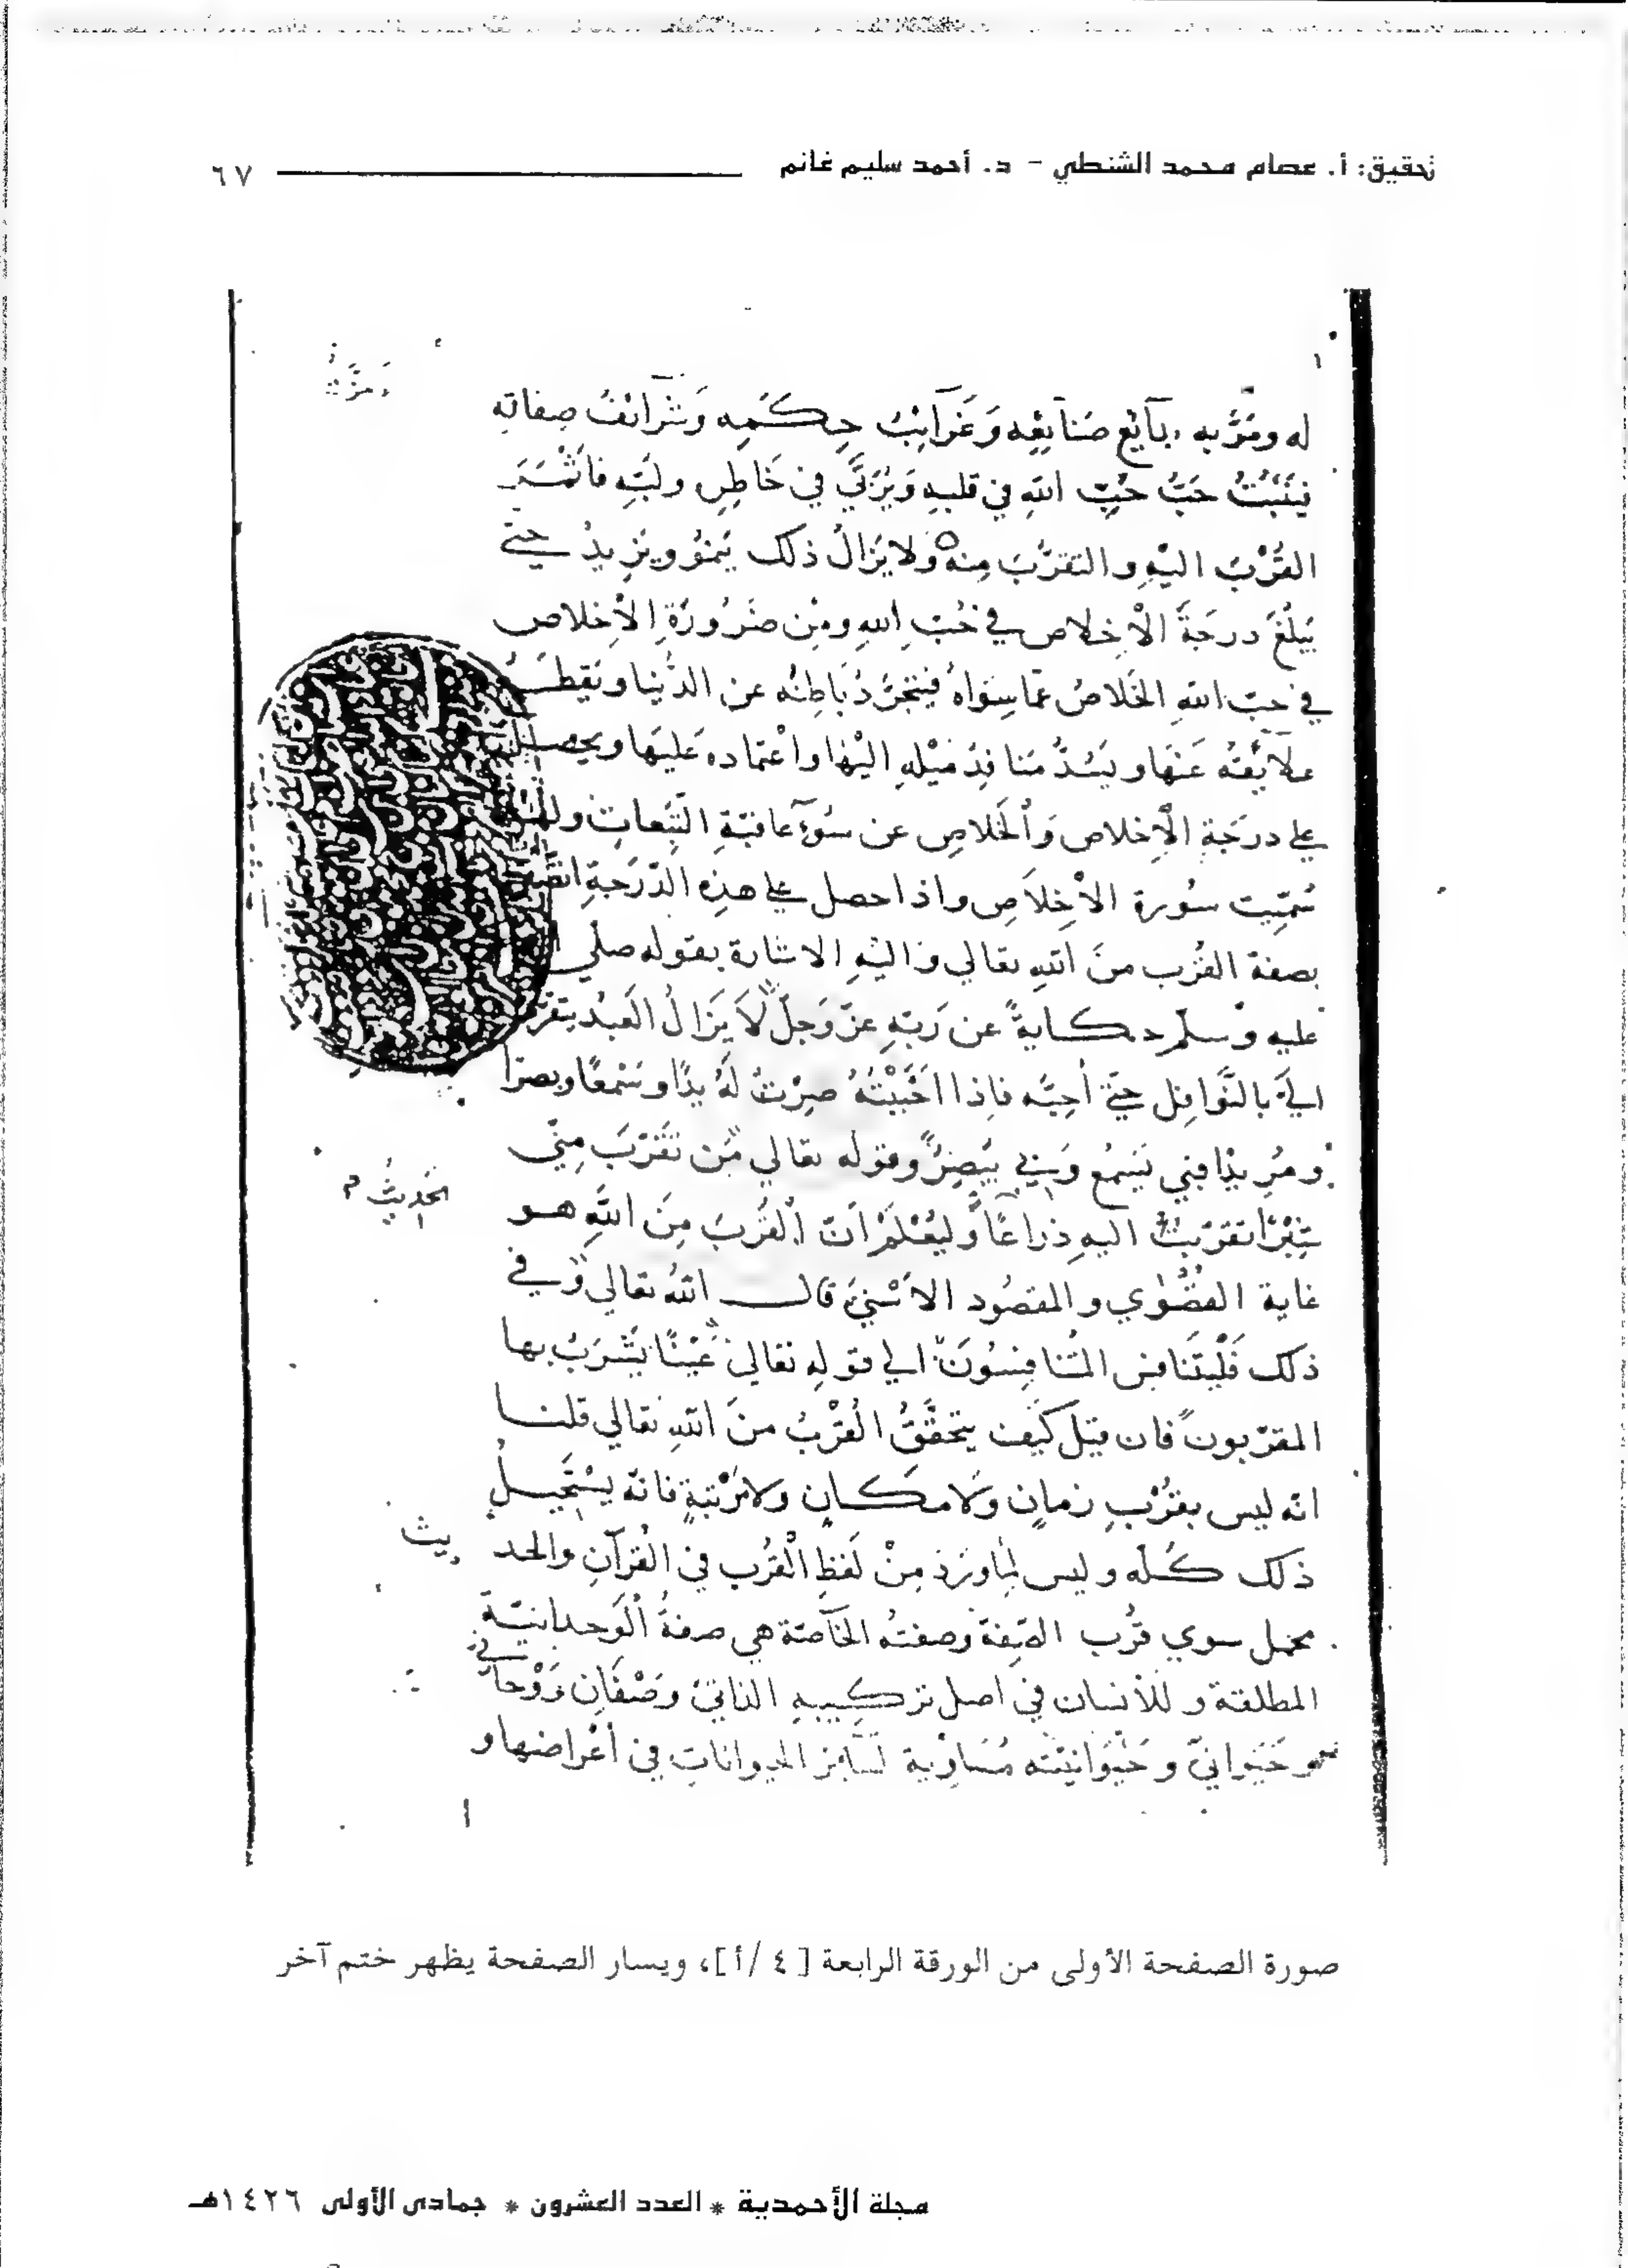 تحقيق: أ. عصام محمد الشنطي - د. أحمد سليم غانم
٦٧
له ومَرَّ به بدَآئِع صَنَآئِعِه وَغَرَآئِبُ حِكَمِه وَشَرَآئفُ صِفاتِه
فيَنبُتُ حَبُّ حُبِّ اللهِ في قلبهِ وَيُرَبَّي في خَاطِرِه ولُبِّهِ فاثمَرَ
القُرْبَ اليْهِ والتقرُّبَ مِنه ولا يَزالُ ذلك يَنمُو ويَزِيدُ حتّى
يَبلُغَ درجَةَ الْاِخلاص في حُبّ اللهِ ومِن ضَرُورَةِ الاِخلاص
في حبّ اللهِ الخَلاصُ عمّا سِوَاهُ فيَتجرَّدُ بَاطِنُه عن الدُّنيا وتَنقطع
علآئقُه عَنهَا ويَنسَدُّ مَنافِذُ مَيْلهِ اليْهَا واعْتماده عَليهَا ويحصل
علي درَجَةِ الْاِخلاص وَالْخَلاصِ عن سُوءِ عاقبَةِ التَّبِعاتِ و
سُمِّيت سُورة الاخِلاَصِ واذا حصل علي هذِه الدّرَجَةِ
بصفة القُرب منَ اللهِ تعالي واليْهِ الاشارة بقوله صلّي
عليه وسلّم حكايةً عن رَبّهِ عزّ وَجلّ لَا يَزَالُ العَبْدُ يتقرّب
اليَّ بالنَّوَافِل حتّى أُحِبَّه فاِذا احْبَبْتُهُ صِرْتُ لَهُ يدًا وسَمْعًا وبصرًا
ومُرِيدًا فبِي يَسمَعُ وَبِي يُبصِرُ وقوله تعالي مَن تقَرَّبَ مِنّي
الحَدِيثُ م
شِبْرًا تقرّبتُ اليهِ ذراعًا وليُعْلَمْ اَنّ الْقُربَ مِنَ اللهِ هو
غاية القصْوي والمقصُود الاَسْنَي قال اللهُ تعالي وَفي
ذلك فَلْيتَنافس المُتنافِسُونَ الي قولِه تعالي عَيْنًا يَشْرَبُ بها
المقرّبون فان قيل كَيْف يتحقَّقُ الْقُرْبُ منَ اللهِ تعالي قلنا
انّه ليس بقُرْبِ زمانٍ وَلا مكانٍ ولا مَرْتبةٍ فانّه يسْتَحيلُ
ذلك كُلّه وليس لِمَا وَرَدَ مِنْ لَفظِ الْقُرْب في الْقُرآنِ والحديث
محمل سوي قُرب الصّفة وصفتُه الخاصّة هي صفةُ الْوَحدانيّة
المطلقة وللأنسان في اصل تركيبهِ الذاتيّ وَصْفَانِ رَوْحانيّ
وحَيَوانيّ وحَيَوَانيّته مُسَاوِية لسَآئر الحيوانات في أغراضها و
صورة الصفحة الأولى من الورقة الرابعة [٤/أ]، ويسار الصفحة يظهر ختم آخر
مجلة الأحمدية * العدد العشرون * جمادى الأولى ١٤٢٦هـ